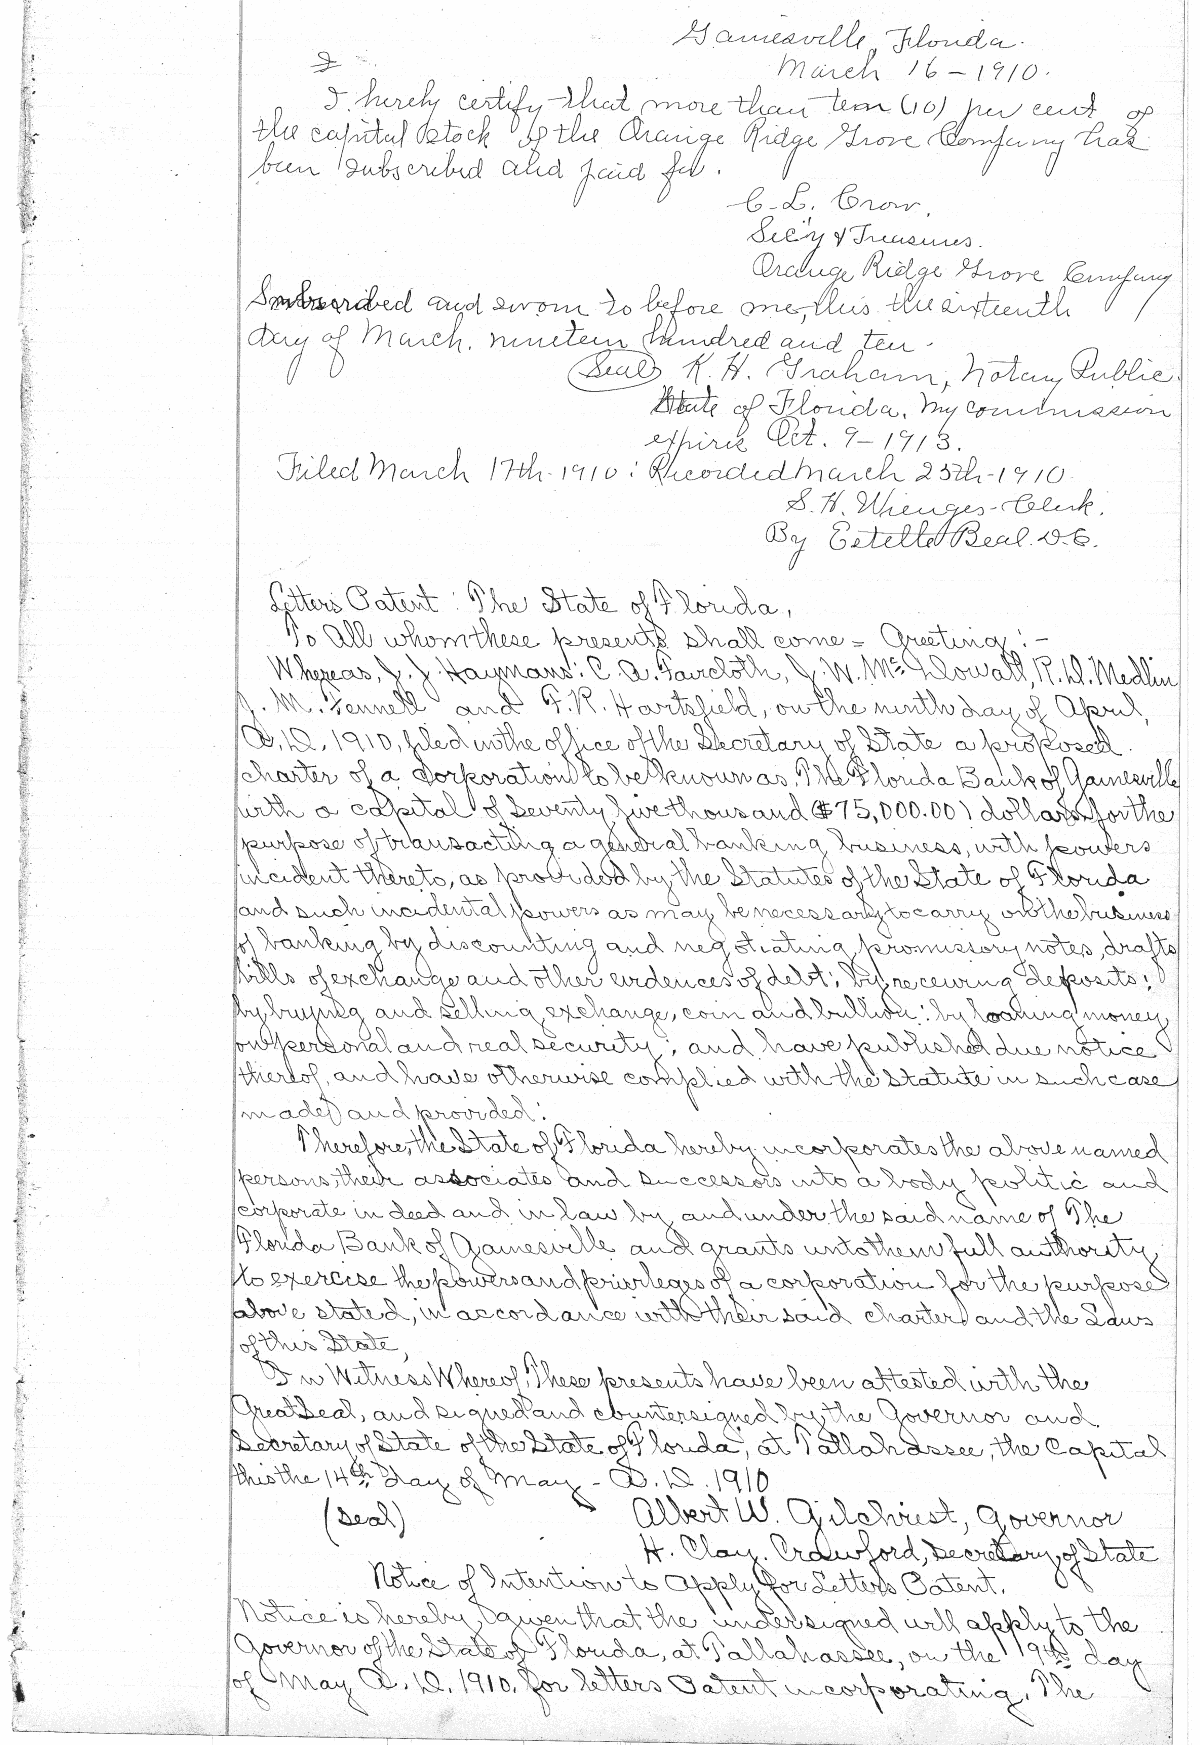 Gainesville, Florida.
March 16-1910.
I
I hereby certify that more than tem (10) per cent of
the capital stock of the Orange Ridge Grove Company has
been subscribed and paid for.
C. L. Crow,
Sec'y & Treasures.
Orange Ridge Grove Company
Subscribed and sworn to before me, this the sixteenth
day of March, nineteen hundred and ten.
(Seal) K. H. Graham, Notary Public.
State of Florida. My commission
expires Oct. 9-1913.
Filed March 17th-1910: Recorded March 25th-1910.
S. H. Wienges-Clerk.
By Estelle Beal. D.C.
Letters Patent: The State of Florida,
To All whom these presents shall come = Greeting:-
Whereas, J. J. Haymans: C. A. Faircloth, J. W. McDowall, R. D. Medlin
J. M. Fennell and F. R. Hartsfield, on the ninth day of April,
A.D. 1910, filed in the office of the Secretary of State a proposed
charter of a Corporation to be known as The Florida Bank of Gainesville
with a capital of Seventy five thousand ($75,000.00) dollars for the
purpose of transacting a general banking business, with powers
incident thereto, as provided by the Statutes of the State of Florida
and such incidental powers as may be necessary to carry on the business
of banking by discounting and negotiating promissory notes, drafts
bills of exchange and other evidences of debt; by receiving deposits;
by buying and selling exchange, coin and bullion: by loaning money
on personal and real security; and have published due notice
thereof, and have otherwise complied with the statute in such case
made and provided:
Therefore, the State of Florida hereby incorporates the above named
persons, their associates and successors into a body politic and
corporate in deed and in law by and under the said name of The
Florida Bank of Gainesville and grants unto them full authority
to exercise the powers and privileges of a corporation for the purpose
above stated, in accordance with their said charter and the Laws
of this State,
In Witness Whereof, These presents have been attested with the
Great Seal, and signed and countersigned by the Governor and
Secretary of State of the State of Florida, at Tallahassee, the Capital
this the 14th day of May - A.D. 1910
(Seal) Albert W. Gilchrist, Governor
H. Clay. Crawford, Secretary of State
Notice of Intention to Apply for Letters Patent.
Notice is hereby given that the undersigned will apply to the
Governor of the State of Florida, at Tallahassee, on the 19th day
of May A.D. 1910, for letters Patent incorporating, The